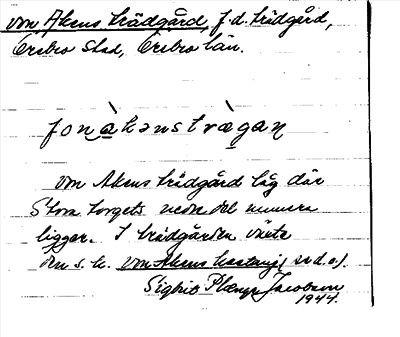 von Akens trädgård, f.d. trädgård,
Örebro stad, Örebro län.
fonàkənstrègaɳ
von Akens trädgård låg där
Stora torgets nedre del numera
ligger. I trädgården växte
den s.k. von Akens kastanj (se d.o.).
Sigbrit Plænge Jacobson
1944.